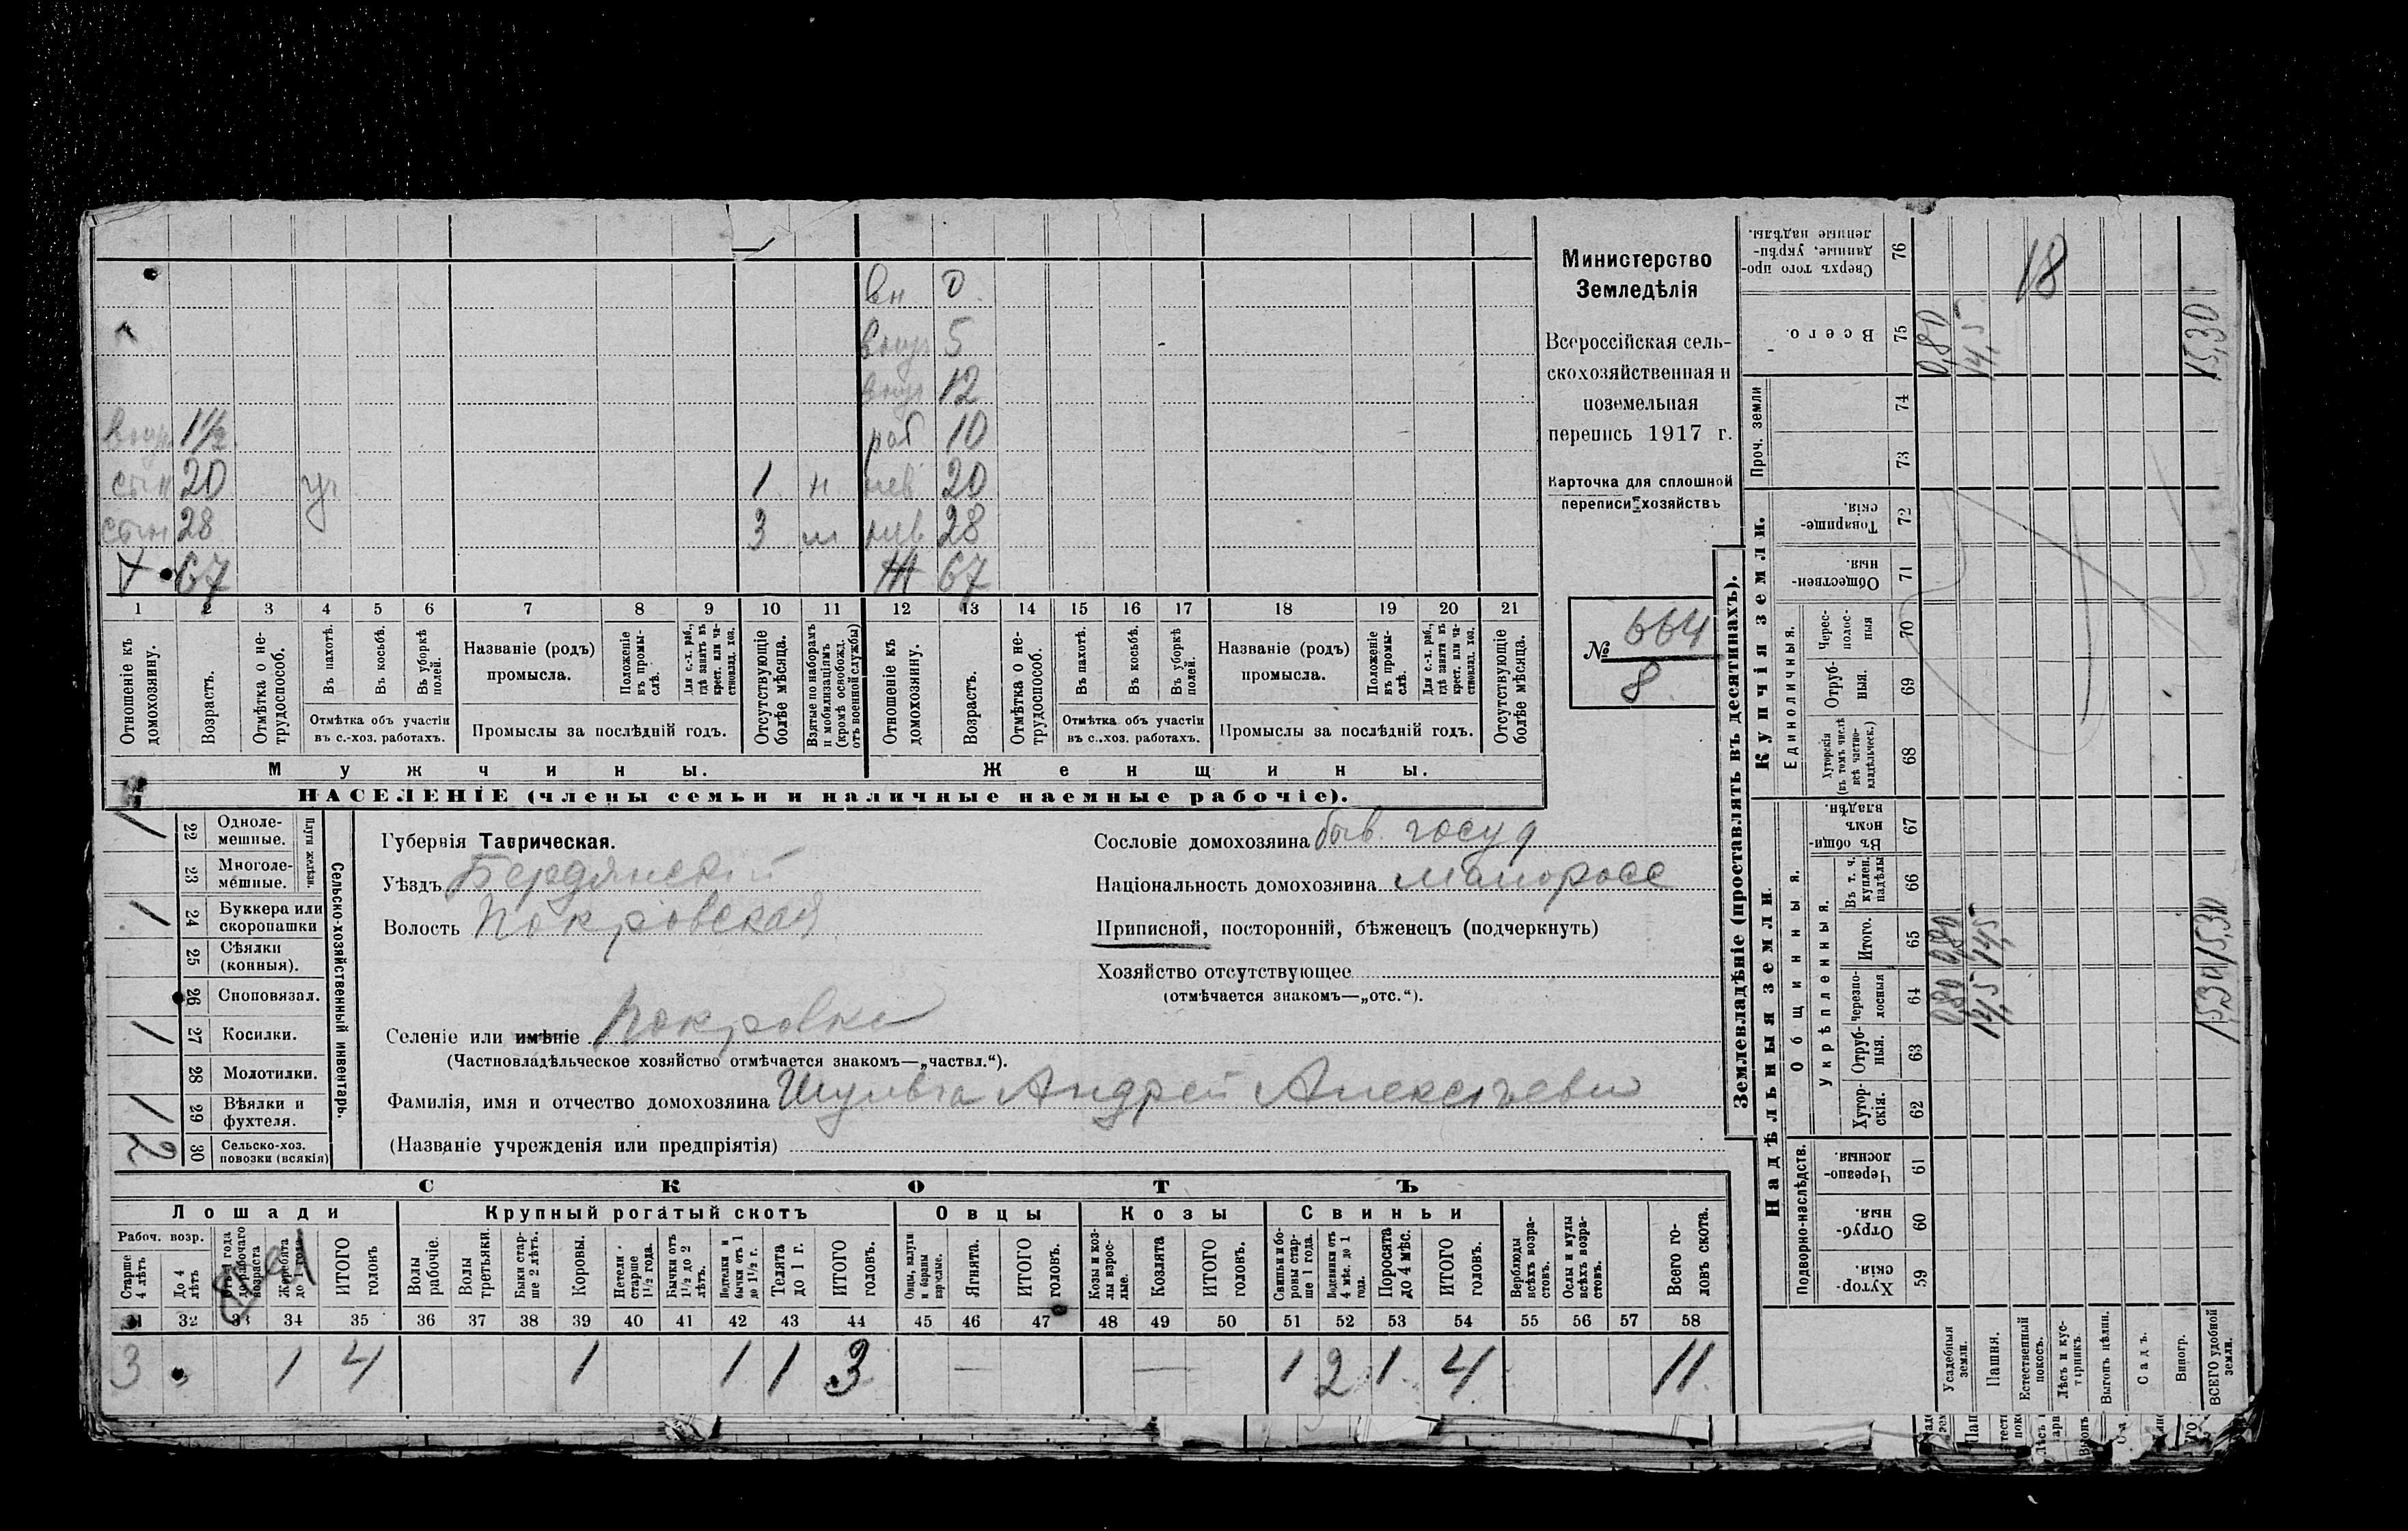 вн 0
внуч 5
внуч 12
внук 1½ раб 10
сын 20 уч 1 н нев 20
сын 28 3 м нев 28
Х 67 Ж 67
1 2 3 4 5 6 7 8 9 10 11 12 13 14 15 16 17 18 19 20 21
Отношеніе къ домохозяину.
Возрастъ.
Отмѣтка о нетрудоспособ.
Въ пахотѣ.
Въ косьбѣ.
Въ уборкѣ полей.
Отмѣтка объ участіи въ с.-хоз. работахъ.
Названіе (родъ) промысла.
Положеніе въ промыслѣ.
Для с.-х. раб., гдѣ занятъ въ крест. или частновлад. хоз.
Промыслы за послѣдній годъ.
Отсутствующіе болѣе мѣсяца.
Взятые по наборамъ и мобилизаціямъ (кромѣ освобожд. отъ военной службы)
Отношеніе къ домохозяину.
Возрастъ.
Отмѣтка о нетрудоспособ.
Въ пахотѣ.
Въ косьбѣ.
Въ уборкѣ полей.
Отмѣтка объ участіи въ с.-хоз. работахъ.
Названіе (родъ) промысла.
Положеніе въ промыслѣ.
Для с.-х. раб., гдѣ занята въ крест. или частновлад. хоз.
Промыслы за послѣдній годъ.
Отсутствующіе болѣе мѣсяца.
Мужчины. Женщины.
НАСЕЛЕНІЕ (члены семьи и наличные наемные рабочіе).
Министерство
Земледѣлія
Всероссійская сель-
скохозяйственная и
поземельная
перепись 1917 г.
Карточка для сплошной
переписи хозяйствъ
№ 664
8
1 22 Однолемешные.
23 Многолемешные.
Плуги желѣзн.
1 24 Буккера или скоропашки
25 Сѣялки (конныя).
26 Сноповязал.
1 27 Косилки.
28 Молотилки.
1 29 Вѣялки и фухтеля.
2 30 Сельско-хоз. повозки (всякія)
Сельско-хозяйственный инвентарь.
Губернія Таврическая.
Уѣздъ Бердянскій
Волость Покровская
Сословіе домохозяина быв. госуд
Національность домохозяина малоросс
Приписной, посторонній, бѣженецъ (подчеркнуть)
Хозяйство отсутствующее
(отмѣчается знакомъ—„отс.“).
Селеніе или имѣніе Покровка
(Частновладѣльческое хозяйство отмѣчается знакомъ—„частвл.“).
Фамилія, имя и отчество домохозяина Шульга Андрей Алексѣевич
(Названіе учрежденія или предпріятія)
СКОТЪ
Лошади Крупный рогатый скотъ Овцы Козы Свиньи
Рабоч. возр.
Старше 4 лѣтъ
До 4 лѣтъ
Отъ 1 года до рабочаго возраста
Жеребята до 1 года
ИТОГО головъ
Волы рабочіе.
Волы третьяки.
Быки старше 2 лѣтъ.
Коровы.
Нетели старше 1½ года.
Бычки отъ 1½ до 2 лѣтъ.
Нетелки и бычки отъ 1 до 1½ г.
Телята до 1 г.
ИТОГО головъ.
Овцы, валухи и бараны взрослые.
Ягнята.
ИТОГО головъ.
Козы и козлы взрослые.
Козлята
ИТОГО головъ.
Свиньи и боровы старше 1 года.
Подсвинки отъ 4 мѣс. до 1 года.
Поросята до 4 мѣс.
ИТОГО головъ.
Верблюды всѣхъ возрастовъ.
Ослы и мулы всѣхъ возрастовъ.
Всего головъ скота.
31 32 33 34 35 36 37 38 39 40 41 42 43 44 45 46 47 48 49 50 51 52 53 54 55 56 57 58
3 1 4 1 1 1 3 — — 1 2 1 4 11
Землевладѣніе (проставлять въ десятинахъ).
Надѣльныя земли. Купчія земли.
Подворно-наслѣдств.
Общинныя.
Укрѣпленныя.
Единоличныя.
Проч. земли
Хуторскія 59
Отрубныя. 60
Черезполосныя. 61
Хуторскія. 62
Отрубныя. 63
Черезполосныя 64
Итого. 65
Въ т. ч. куплен. надѣлы 66
Въ общинномъ владѣн. 67
Хуторскія (въ томъ числѣ всѣ частновладѣльческ.) 68
Отрубныя. 69
Чересполосныя 70
Общественныя. 71
Товарищескія. 72
73
74
Всего. 75
Сверхъ того проданные, укрѣпленные надѣлы. 76
Усадебныя земли. 0,80 0,80 0,80
Пашня. 14,5 14,5 14,5
Естественный покосъ.
18
Лѣсъ и кустарникъ.
Выгонъ цѣлин.
Садъ.
Виногр.
ВСЕГО удобной земли. 15,30 15,30 15,30